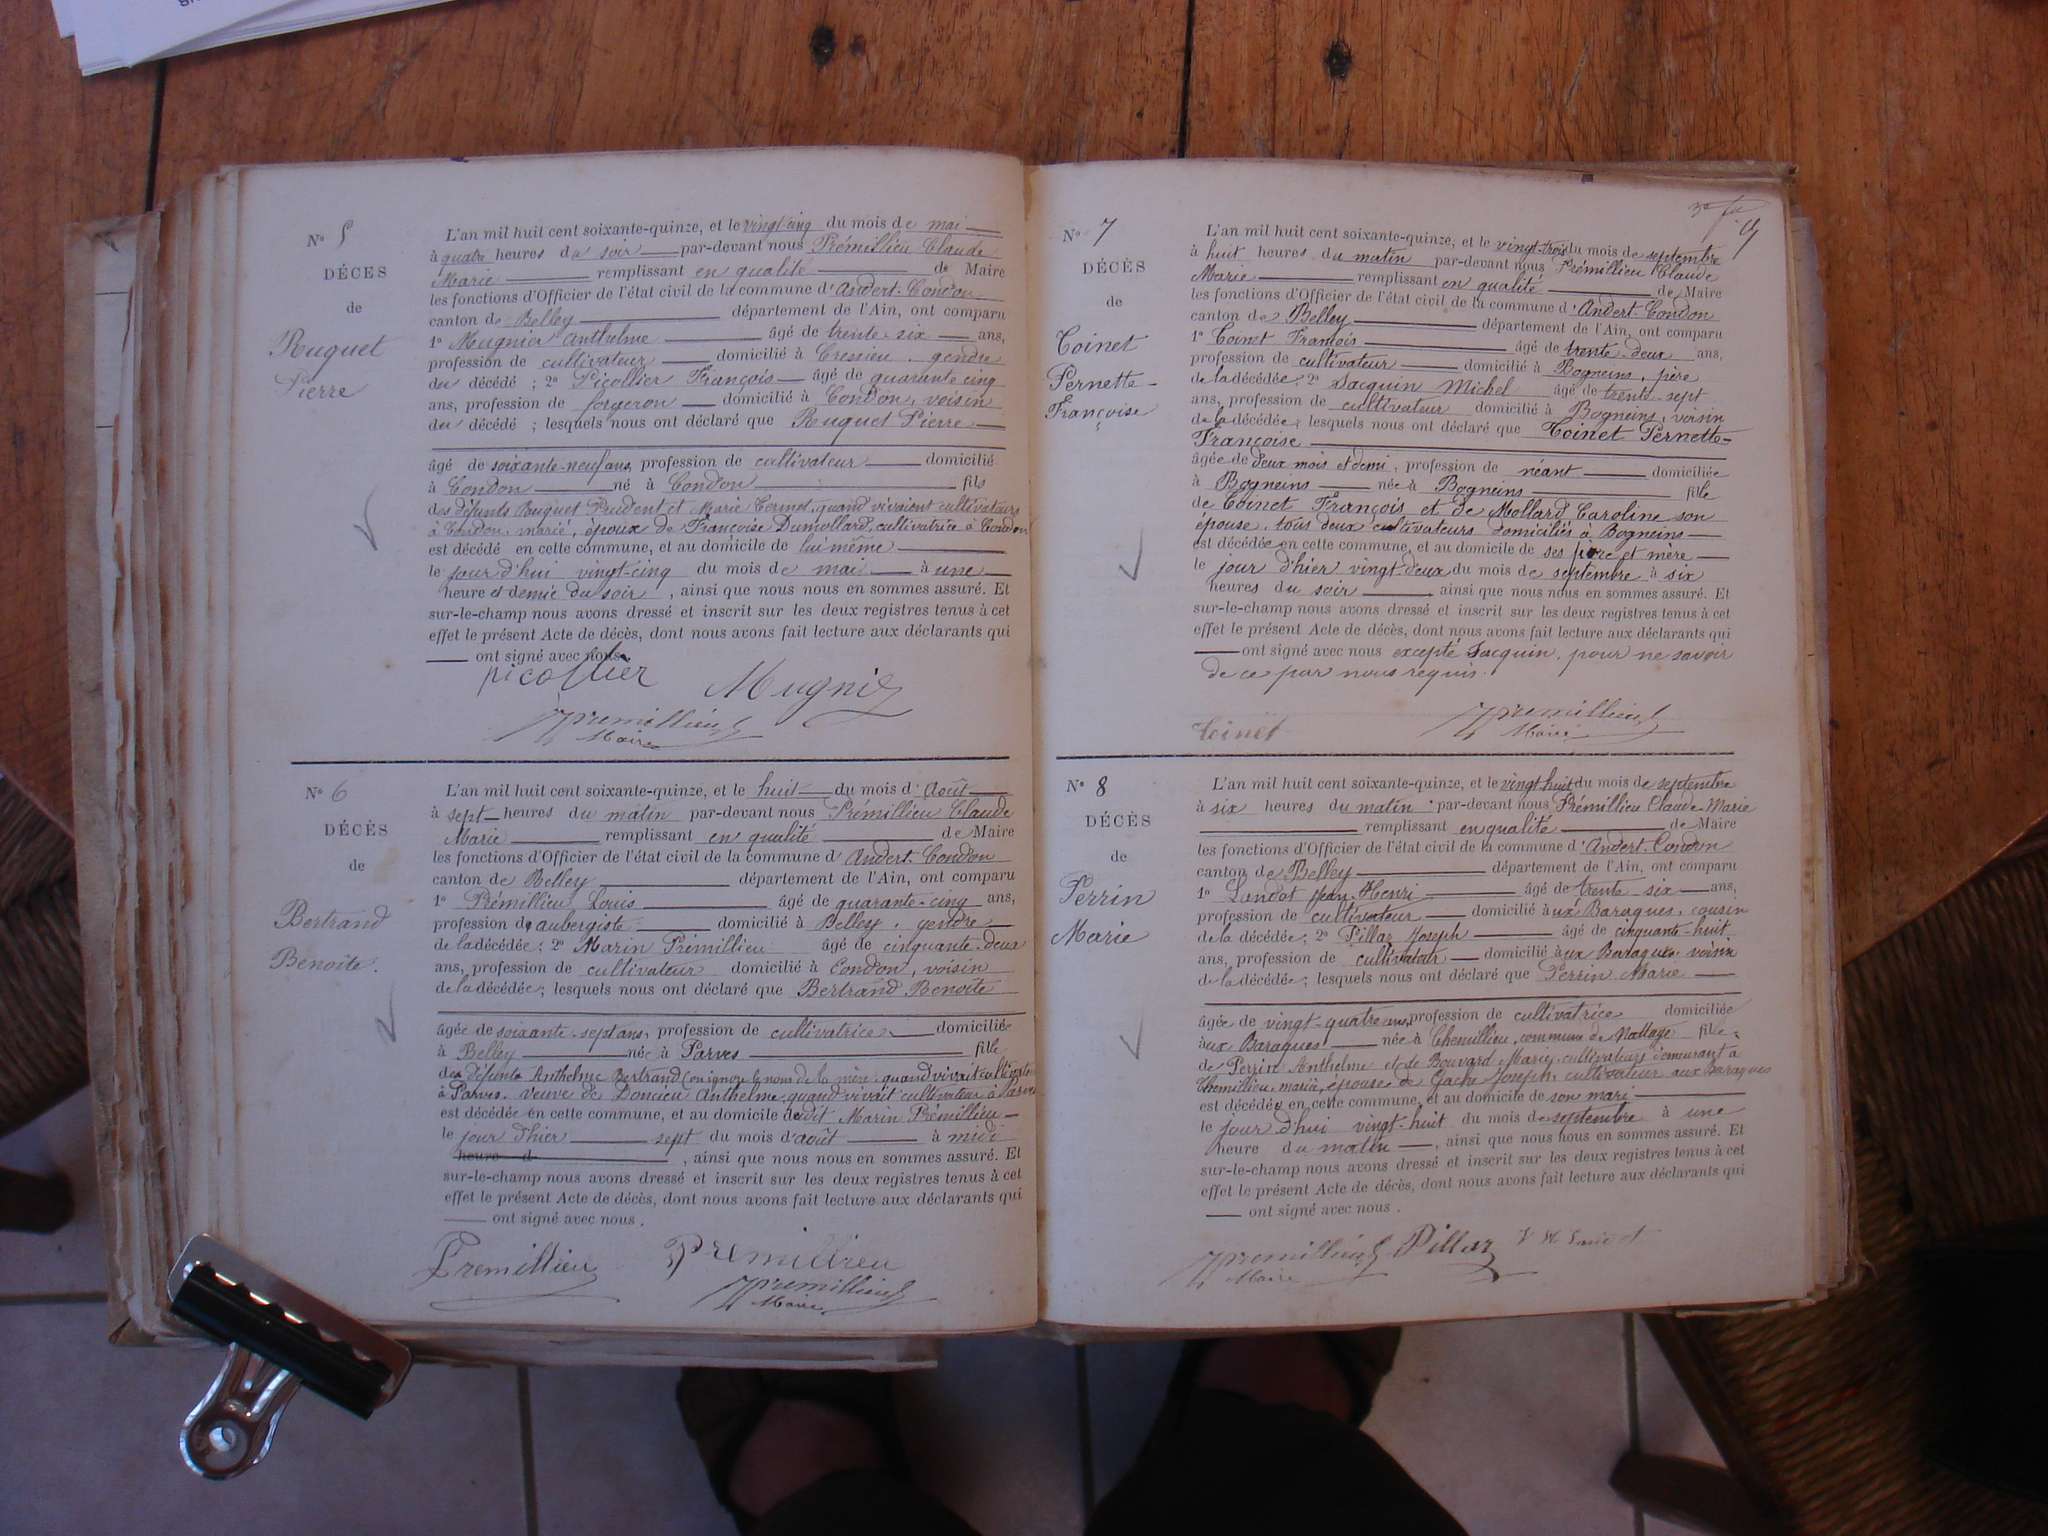 N° 5
DÉCES
de
Ruquet
Pierre
L'an mil huit cent soixante-quinze, et le vingt-cinq du mois de mai
à quatre heures du soir par-devant nous Prémillieu Claude
Marie remplissant en qualité de Maire
les fonctions d'Officier de l'état civil de la commune d'Andert-Condon
canton de Belley département de l'Ain, ont comparu
1° Mugnier Anthelme âgé de trente-six ans,
profession de cultivateur domicilié à Cressieu, gendre
du décédé ; 2° Picollier François âgé de quarante cinq
ans, profession de forgeron domicilié à Condon, voisin
du décédé ; lesquels nous ont déclaré que Ruquet Pierre
âgé de soixante-neuf ans, profession de cultivateur domicilié
à Condon né à Condon fils
des défunts Ruquet Prudent et Marie quand vivaient cultivateurs
à Condon, marié, époux de Françoise Dumollard, cultivatrice à Condon
est décédé en cette commune, et au domicile de lui même
le jour d'hui vingt-cinq du mois de mai à une
heure et demie du soir, ainsi que nous nous en sommes assuré. Et
sur-le-champ nous avons dressé et inscrit sur les deux registres tenus à cet
effet le présent Acte de décès, dont nous avons fait lecture aux déclarants qui
ont signé avec nous.
picollier Mugnier
Premillieu
Maire
N° 6
DÉCÈS
de
Bertrand
Benoite.
L'an mil huit cent soixante-quinze, et le huit du mois d'Août
à sept heures du matin par-devant nous Prémillieu Claude
Marie remplissant en qualité de Maire
les fonctions d'Officier de l'état civil de la commune d'Andert-Condon
canton de Belley département de l'Ain, ont comparu
1° Prémillieu Louis âgé de quarante-cinq ans,
profession d'aubergiste domicilié à Belley, gendre
de la décédée ; 2° Marin Prémillieu âgé de cinquante-deux
ans, profession de cultivateur domicilié à Condon, voisin
de la décédée ; lesquels nous ont déclaré que Bertrand Benoite
âgée de soixante-sept ans, profession de cultivatrice domiciliée
à Belley née à Parves fille
de défunt Anthelme Bertrand (on ignore le nom de la mère, quand vivait cultivateur
à Parves, veuve de Doncieu Anthelme, quand vivait cultivateur à Parves
est décédée en cette commune, et au domicile dudit Marin Prémillieu
le jour d'hier sept du mois d'août à midi
heure d , ainsi que nous nous en sommes assuré. Et
sur-le-champ nous avons dressé et inscrit sur les deux registres tenus à cet
effet le présent Acte de décès, dont nous avons fait lecture aux déclarants qui
ont signé avec nous.
Premillieu Premillieu
Premillieu
Maire
N° 7
DÉCÈS
de
Toinet
Pernette-
Françoise
L'an mil huit cent soixante-quinze, et le vingt-trois du mois de septembre
à huit heures du matin par-devant nous Prémillieu Claude
Marie remplissant en qualité de Maire
les fonctions d'Officier de l'état civil de la commune d'Andert-Condon
canton de Belley département de l'Ain, ont comparu
1° Toinet François âgé de trente-deux ans,
profession de cultivateur domicilié à Bogneins, père
de la décédée ; 2° Jacquin Michel âgé de trente-sept
ans, profession de cultivateur domicilié à Bogneins, voisin
de la décédée ; lesquels nous ont déclaré que Toinet Pernette-
Françoise
âgée de deux mois et demi, profession de néant domiciliée
à Bogneins née à Bogneins fille
de Toinet François et de Mollard Caroline son
épouse, tous deux cultivateurs domiciliés à Bogneins
est décédée en cette commune, et au domicile de ses père et mère
le jour d'hier vingt-deux du mois de septembre à six
heures du soir ainsi que nous nous en sommes assuré. Et
sur-le-champ nous avons dressé et inscrit sur les deux registres tenus à cet
effet le présent Acte de décès, dont nous avons fait lecture aux déclarants qui
ont signé avec nous excepté Jacquin, pour ne savoir
de ce par nous requis.
Toinet Premillieu
Maire
N° 8
DÉCÈS
de
Perrin
Marie
L'an mil huit cent soixante-quinze, et le vingt huit du mois de septembre
à six heures du matin par-devant nous Prémillieu Claude-Marie
remplissant en qualité de Maire
les fonctions d'Officier de l'état civil de la commune d'Andert-Condon
canton de Belley département de l'Ain, ont comparu
1° Landot Jean-Henri âgé de trente-six ans,
profession de cultivateur domicilié aux Baraques, cousin
de la décédée ; 2° Pillaz Joseph âgé de cinquante-huit
ans, profession de cultivateur domicilié aux Baraques voisin
de la décédée ; lesquels nous ont déclaré que Perrin Marie
âgée de vingt-quatre ans, profession de cultivatrice domiciliée
aux Baraques née à Chemillieu, commune de Nattage fille
de Perrin Anthelme et de Bouvard Marie, cultivateurs demeurant à
Chemillieu, mariée, épouse de Gache Joseph, cultivateur aux Baraques
est décédée en cette commune, et au domicile de son mari
le jour d'hui vingt-huit du mois de septembre à une
heure du matin, ainsi que nous nous en sommes assuré. Et
sur-le-champ nous avons dressé et inscrit sur les deux registres tenus à cet
effet le présent Acte de décès, dont nous avons fait lecture aux déclarants qui
ont signé avec nous.
Premillieu Pillaz
Maire